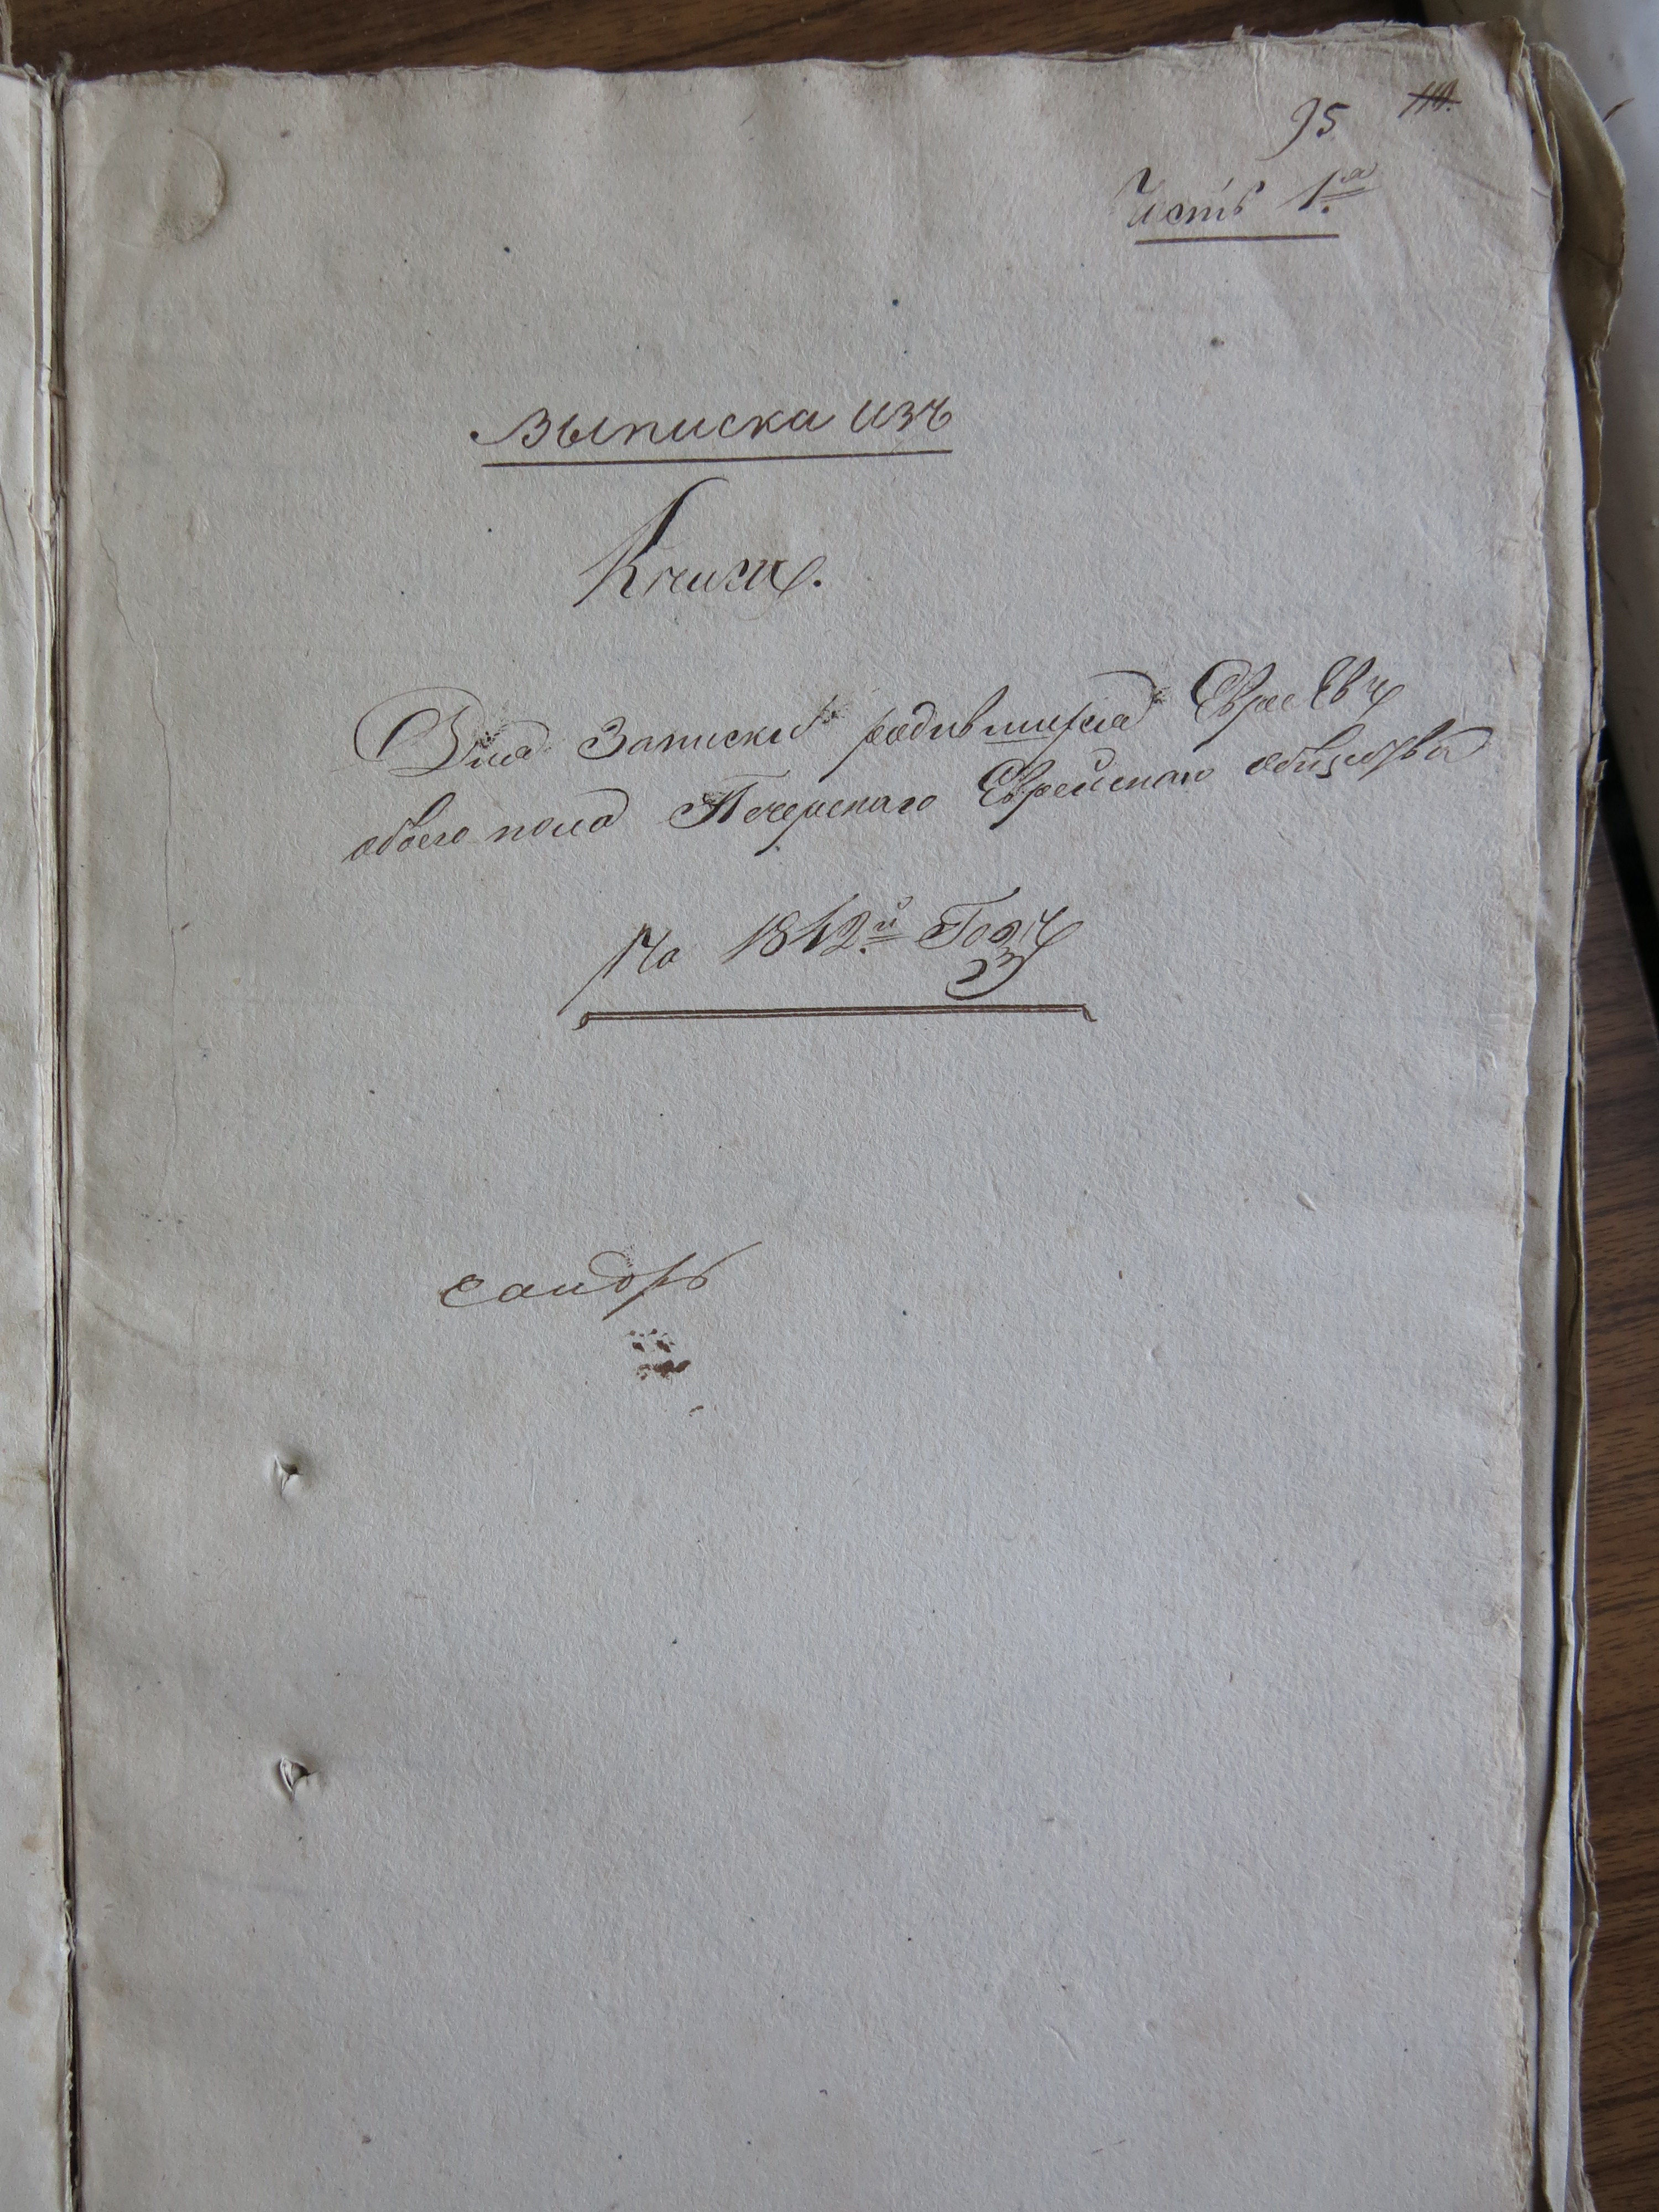 95 110.
Часть 1.ая
Выписка изъ
Книги.
Для Записки родившихся Евреевъ
обоего пола Печерскаго Еврейскаго общества
На 1842.й Годъ